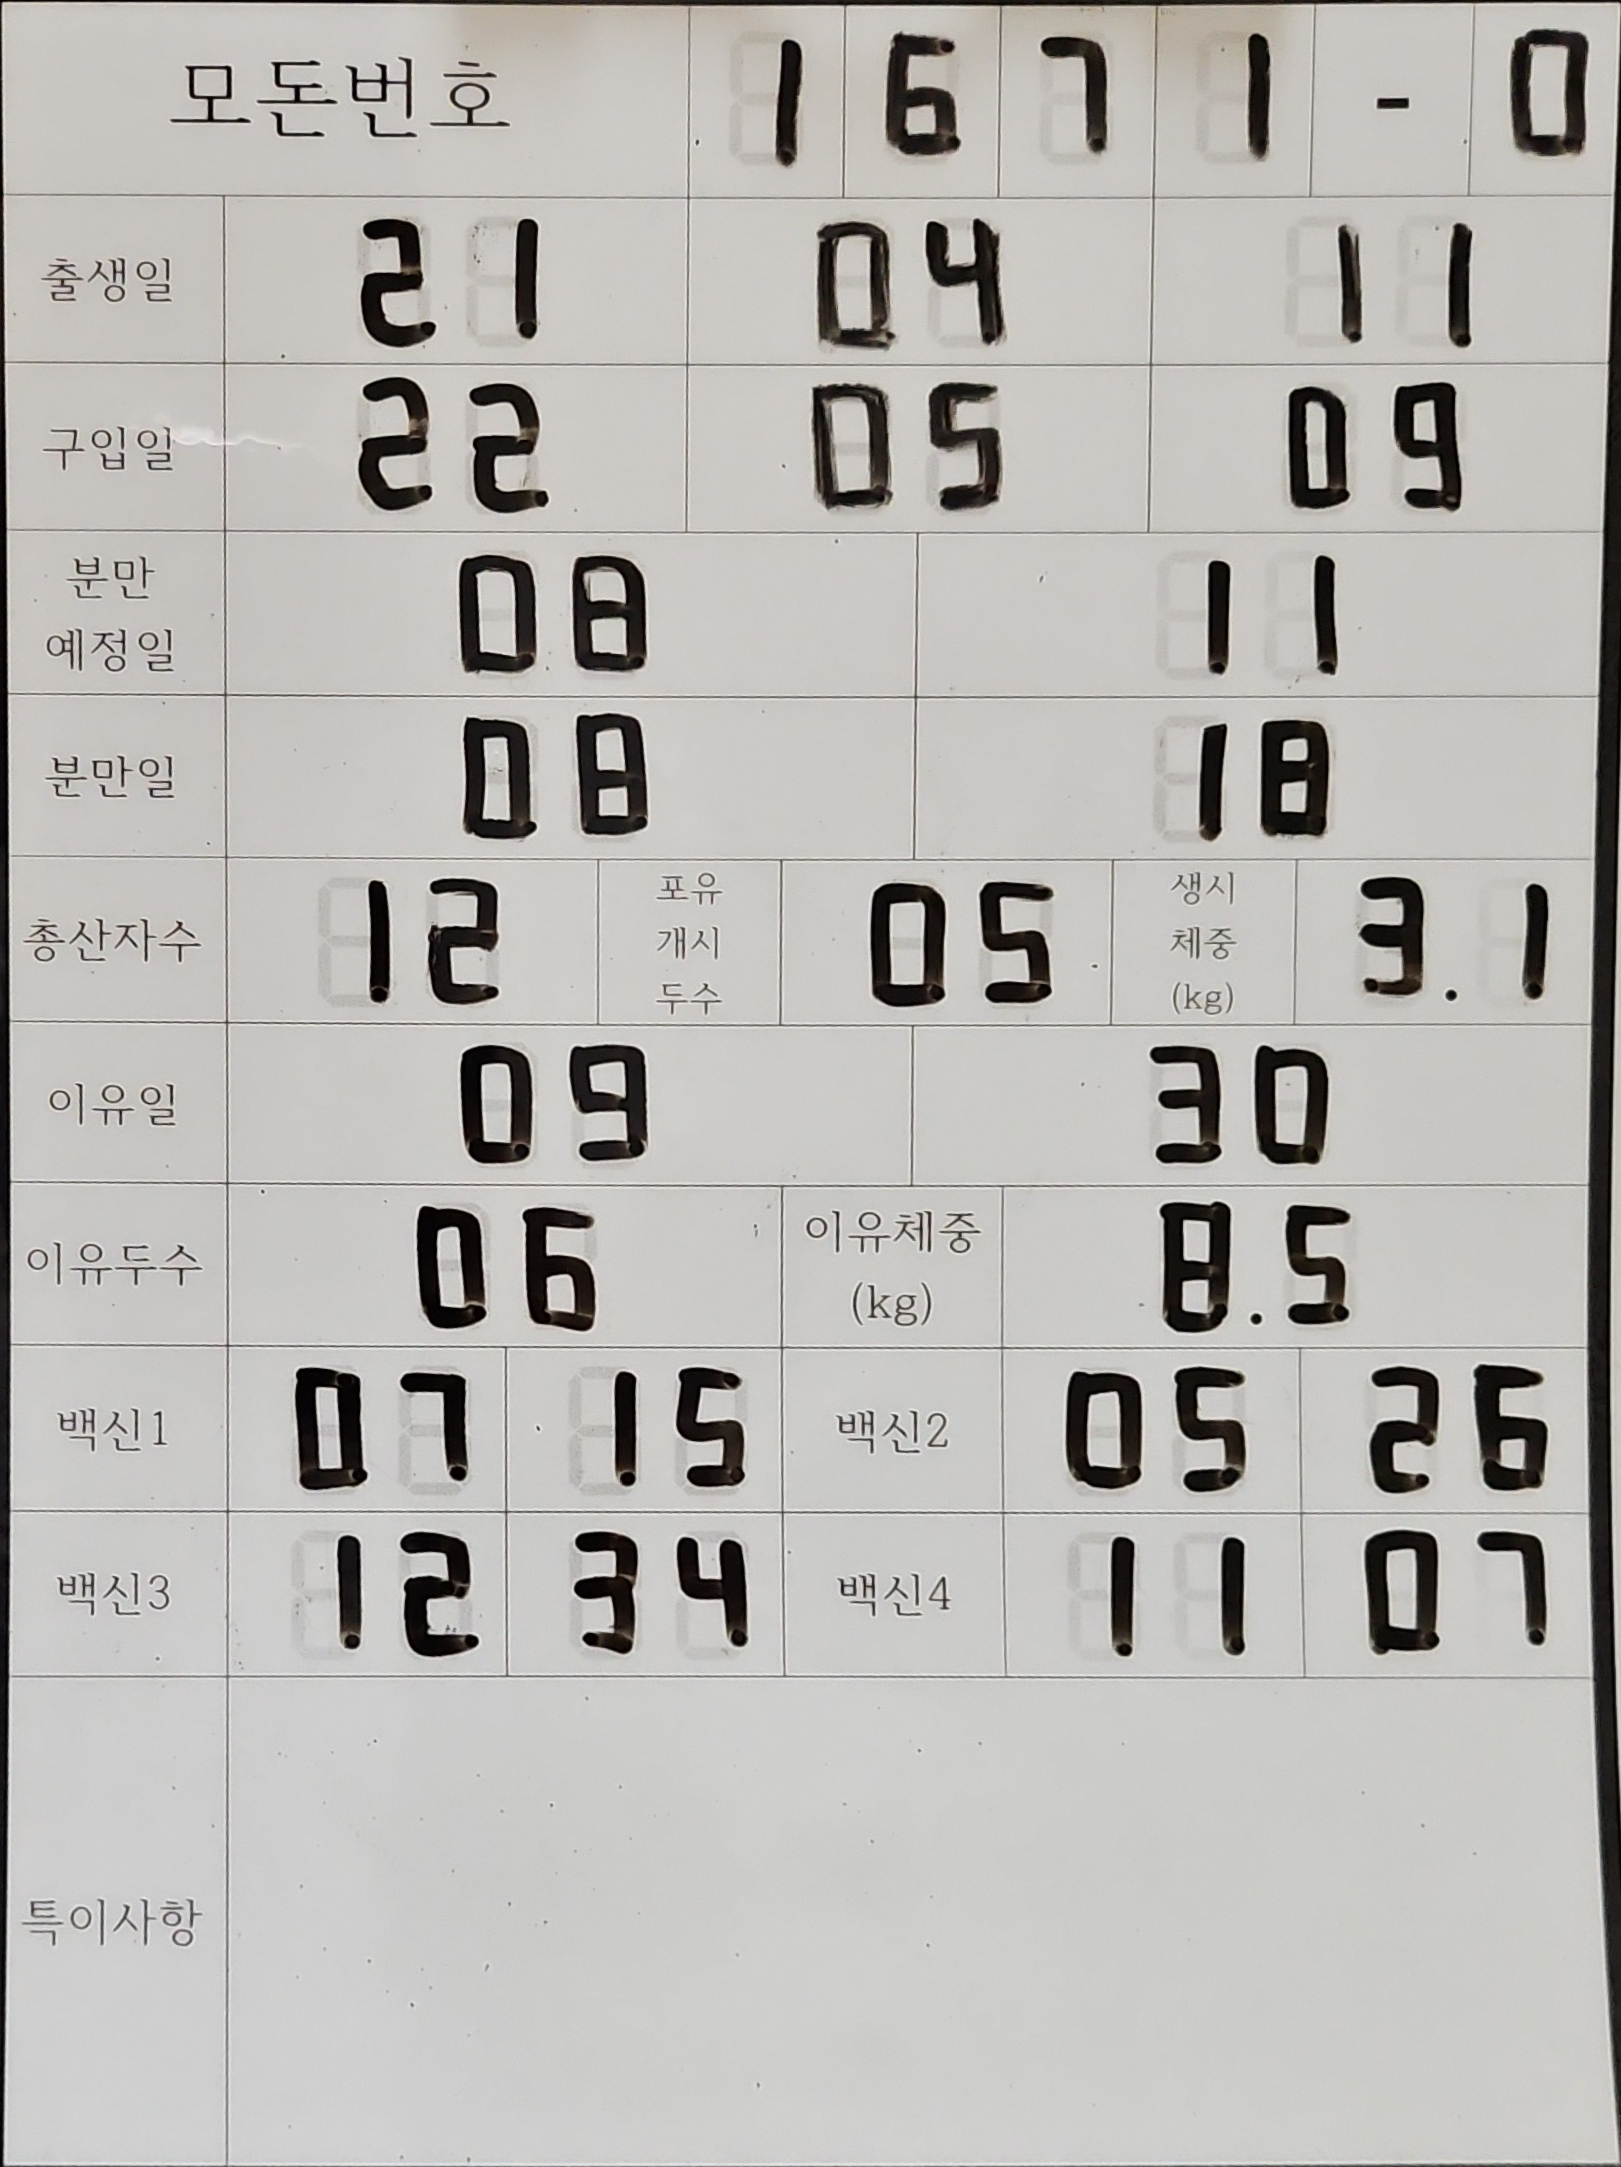 모돈번호 1 6 7 1 - 0
출생일 21 04 11
구입일 22 05 09
분만
예정일 08 11
분만일 08 18
총산자수 12 포유
개시
두수 05 생시
체중
(kg) 3.1
이유일 09 30
이유두수 06 이유체중
(kg) 8.5
백신1 07 15 백신2 05 26
백신3 12 34 백신4 11 07
특이사항